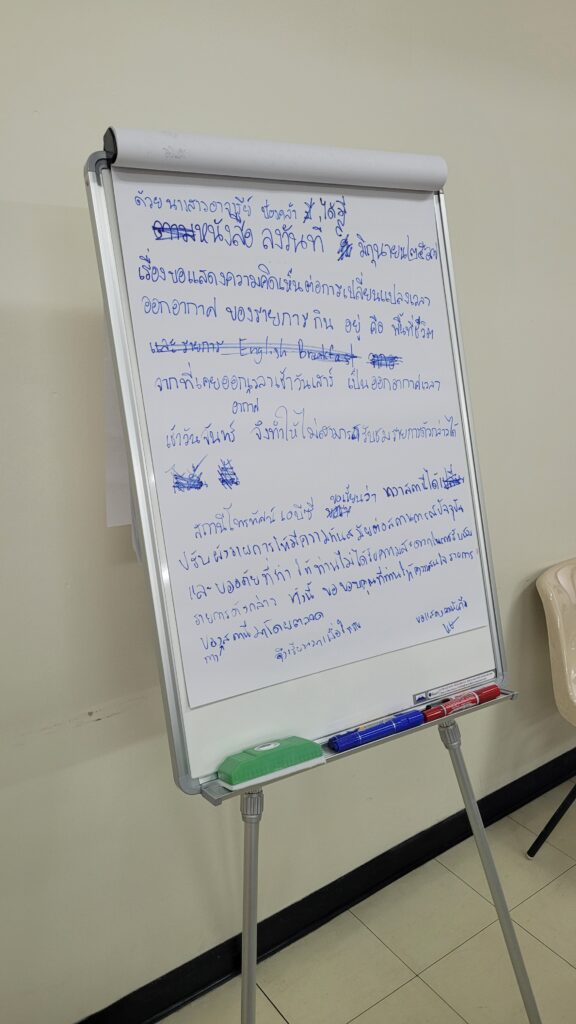 ด้วย นางสาวอาจุรีย์ มี ได้มี
หนังสือ ลงวันที่ มิถุนายน ๒๕๖๗
เรื่องขอแสดงความคิดเห็นต่อการเปลี่ยนแปลงเวลา
ออกอากาศ ของรายการ กิน อยู่ คือ พื้นที่ชีวิต
และ รายการ English Breakfast
จากที่เคยออกเวลาเช้าวันเสาร์ เป็นออกอากาศเวลา
อากาศ
เช้าวันจันทร์ จึงทำให้ไม่สามารถรับชมรายการดังกล่าวได้
สถานีโทรทัศน์ เอบีซี ขอเรียนว่า ทางสถานีได้
ปรับผังรายการให้มีความทันสมัยต่อสถานการณ์ปัจจุบัน
และ ขออภัยที่ทำให้ท่านไม่ได้รับความสะดวกในการรับชม
รายการดังกล่าว ทั้งนี้ ขอขอบคุณที่ท่านให้ความสนใจ รายการ
ของสถานี โดยตลอด
จึงเรียนมาเพื่อโปรด
ขอแสดงความนับถือ